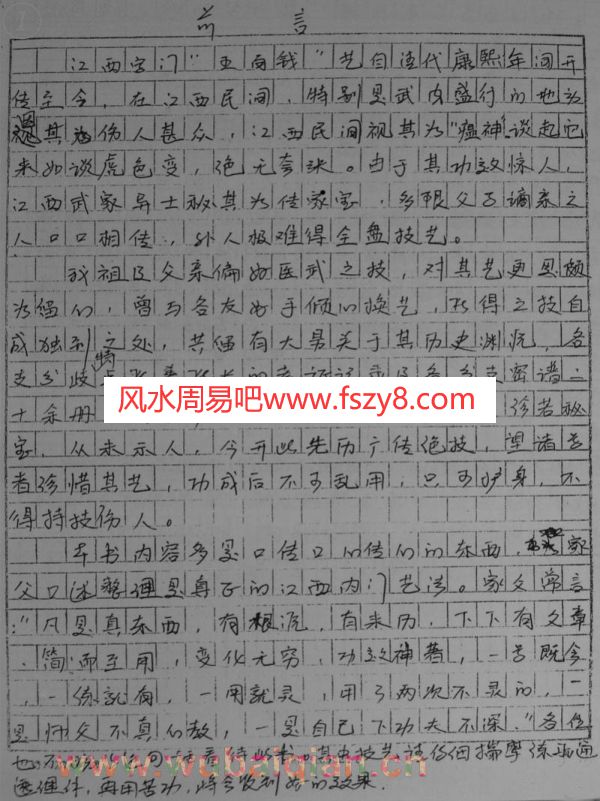 前言
江西字门"五百钱"艺自清代康熙年间开
传至今,在江西民间,特别是武内盛行的地方
其为伤人甚众,江西民间视其为"瘟神"谈起它
来如谈虎色变,绝无夸张。由于其功效惊人,
江西武家异士秘其为传家宝,多限父子嫡系之
人口口相传,外人极难得全盘技艺。
我祖及父亲偏好医武之技,对其艺更是颇
为,曾与各友好手倾心换艺,所得之技自
成独到之处,共有大量关于其历史渊沅,各
支分歧特密谱二
十余册珍若秘
宝,从未示人,今开此先历广传绝技,望诸君
者珍惜其艺,功成后不可乱用,只可护身,不
得持技伤人。
本书内容多是口传口的东西,家
父口述整理是身子的江西内门艺法。家父常言
:"凡是真东西,有根沅,有来历,下下有文章
,简而至用,变化无穷,功效神著,一
,一练就有,一用就灵,用了两次不灵的,一
是师父不真心教,一是自己下功夫不深。"各位
技艺请仔细揣摩练
再用苦功,将会收到好的效果.
风水周易吧www.fszy8.com
www.wubaiqian.cn